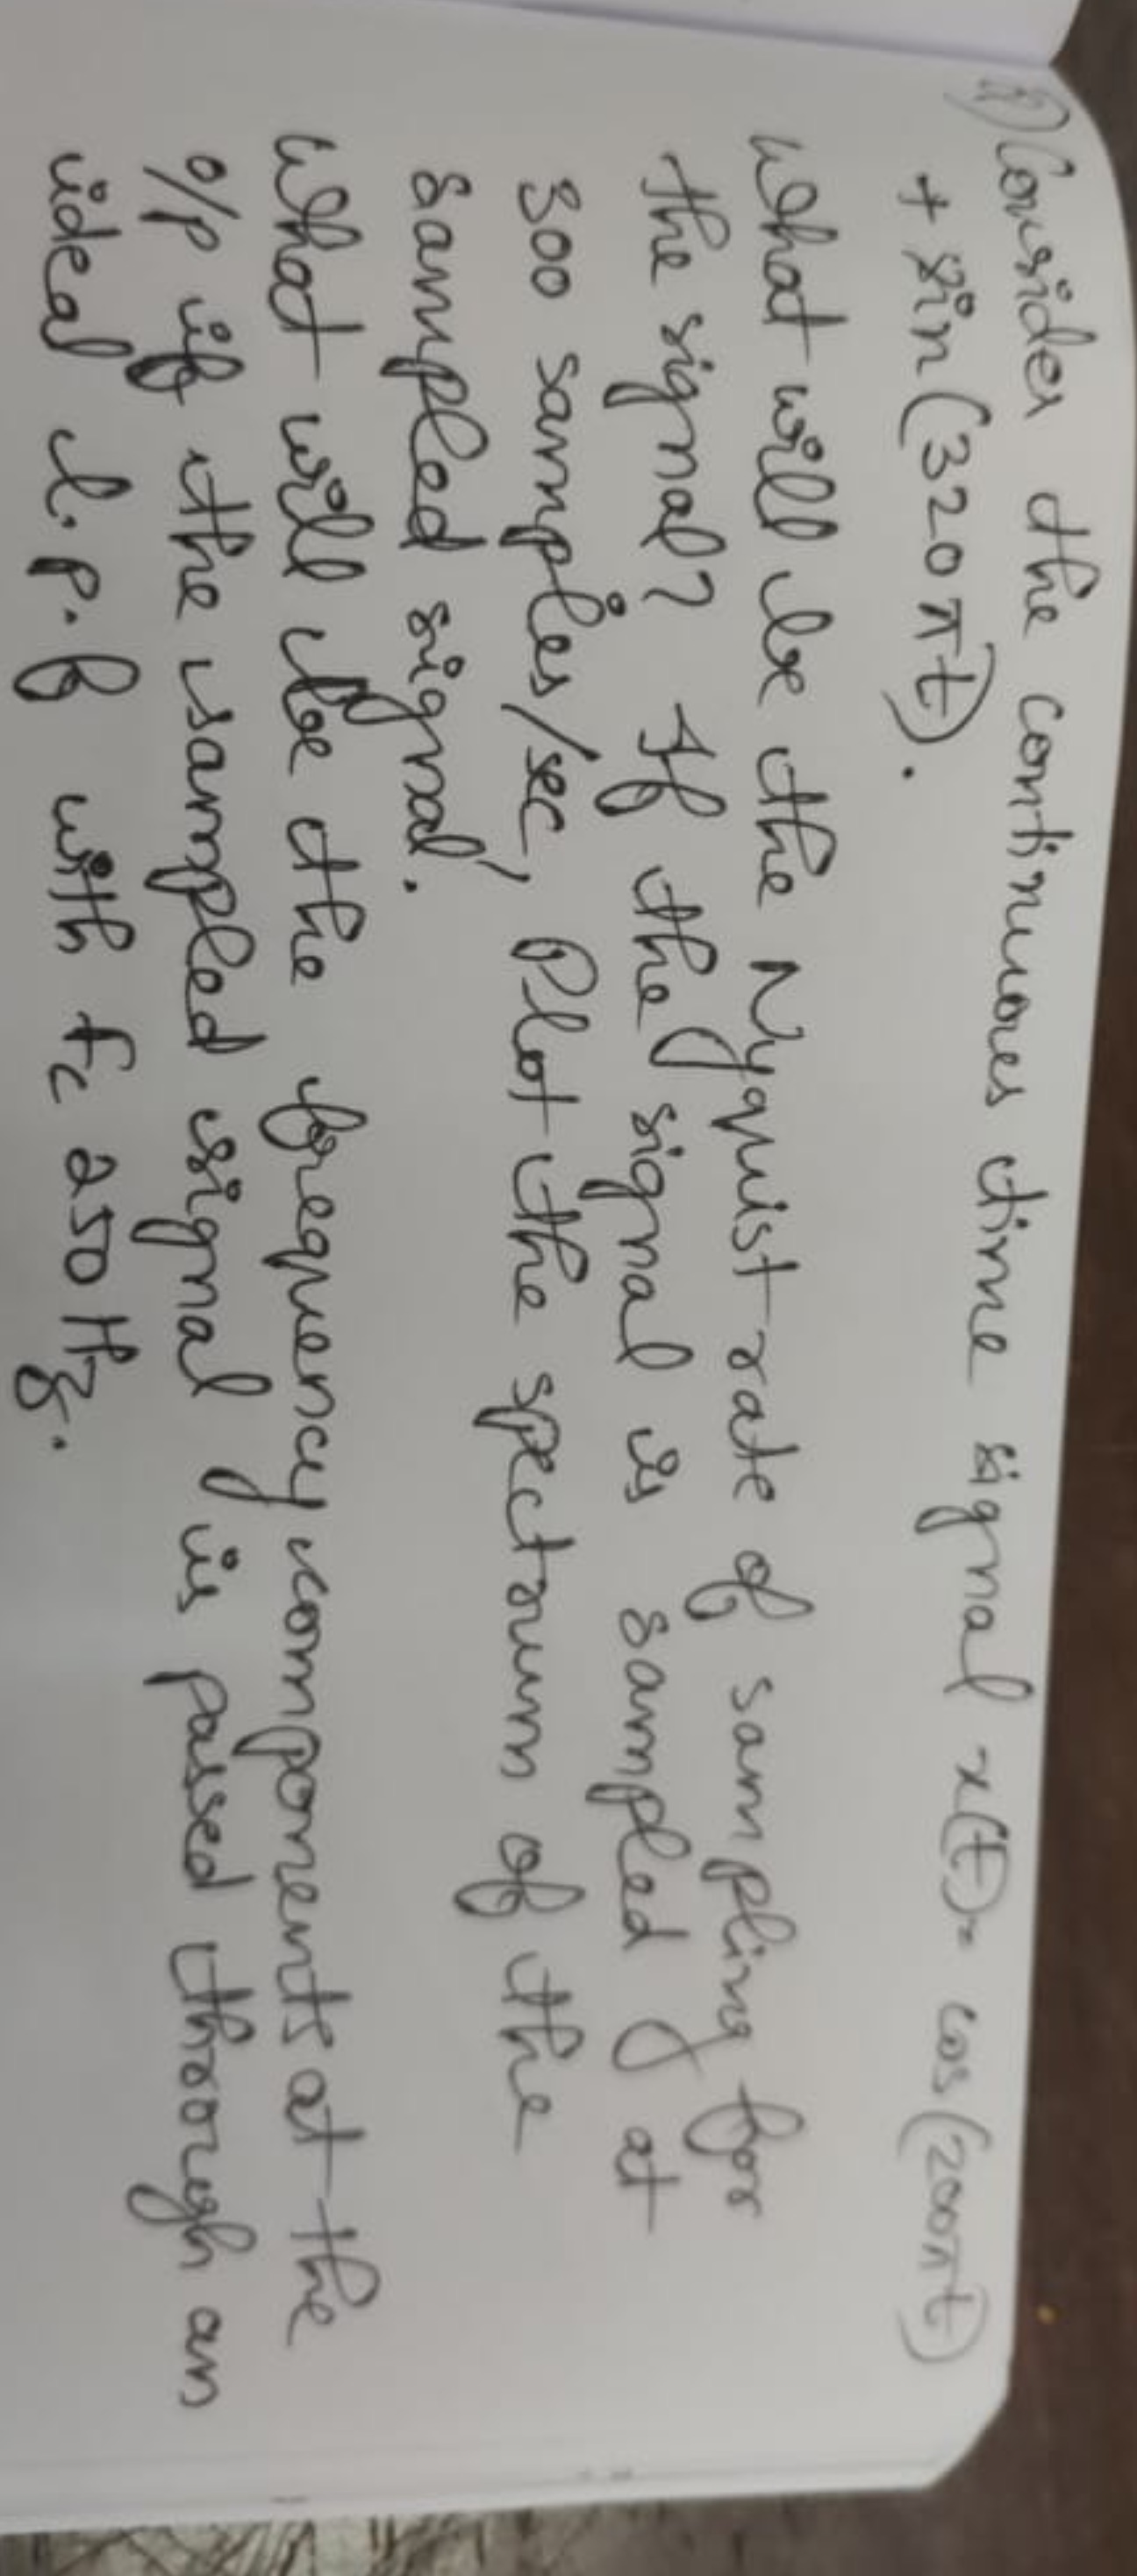 Consider the continuous time signal x(t)= cos(200πt)
+ sin(320πt).
What will be the Nyquist rate of sampling for
the signal? If the signal is sampled at
300 samples/sec, Plot the spectrum of the
sampled signal.
What will be the frequency components at the
o/p if the sampled signal is passed through an
ideal l.p.f with fc 250 Hz.